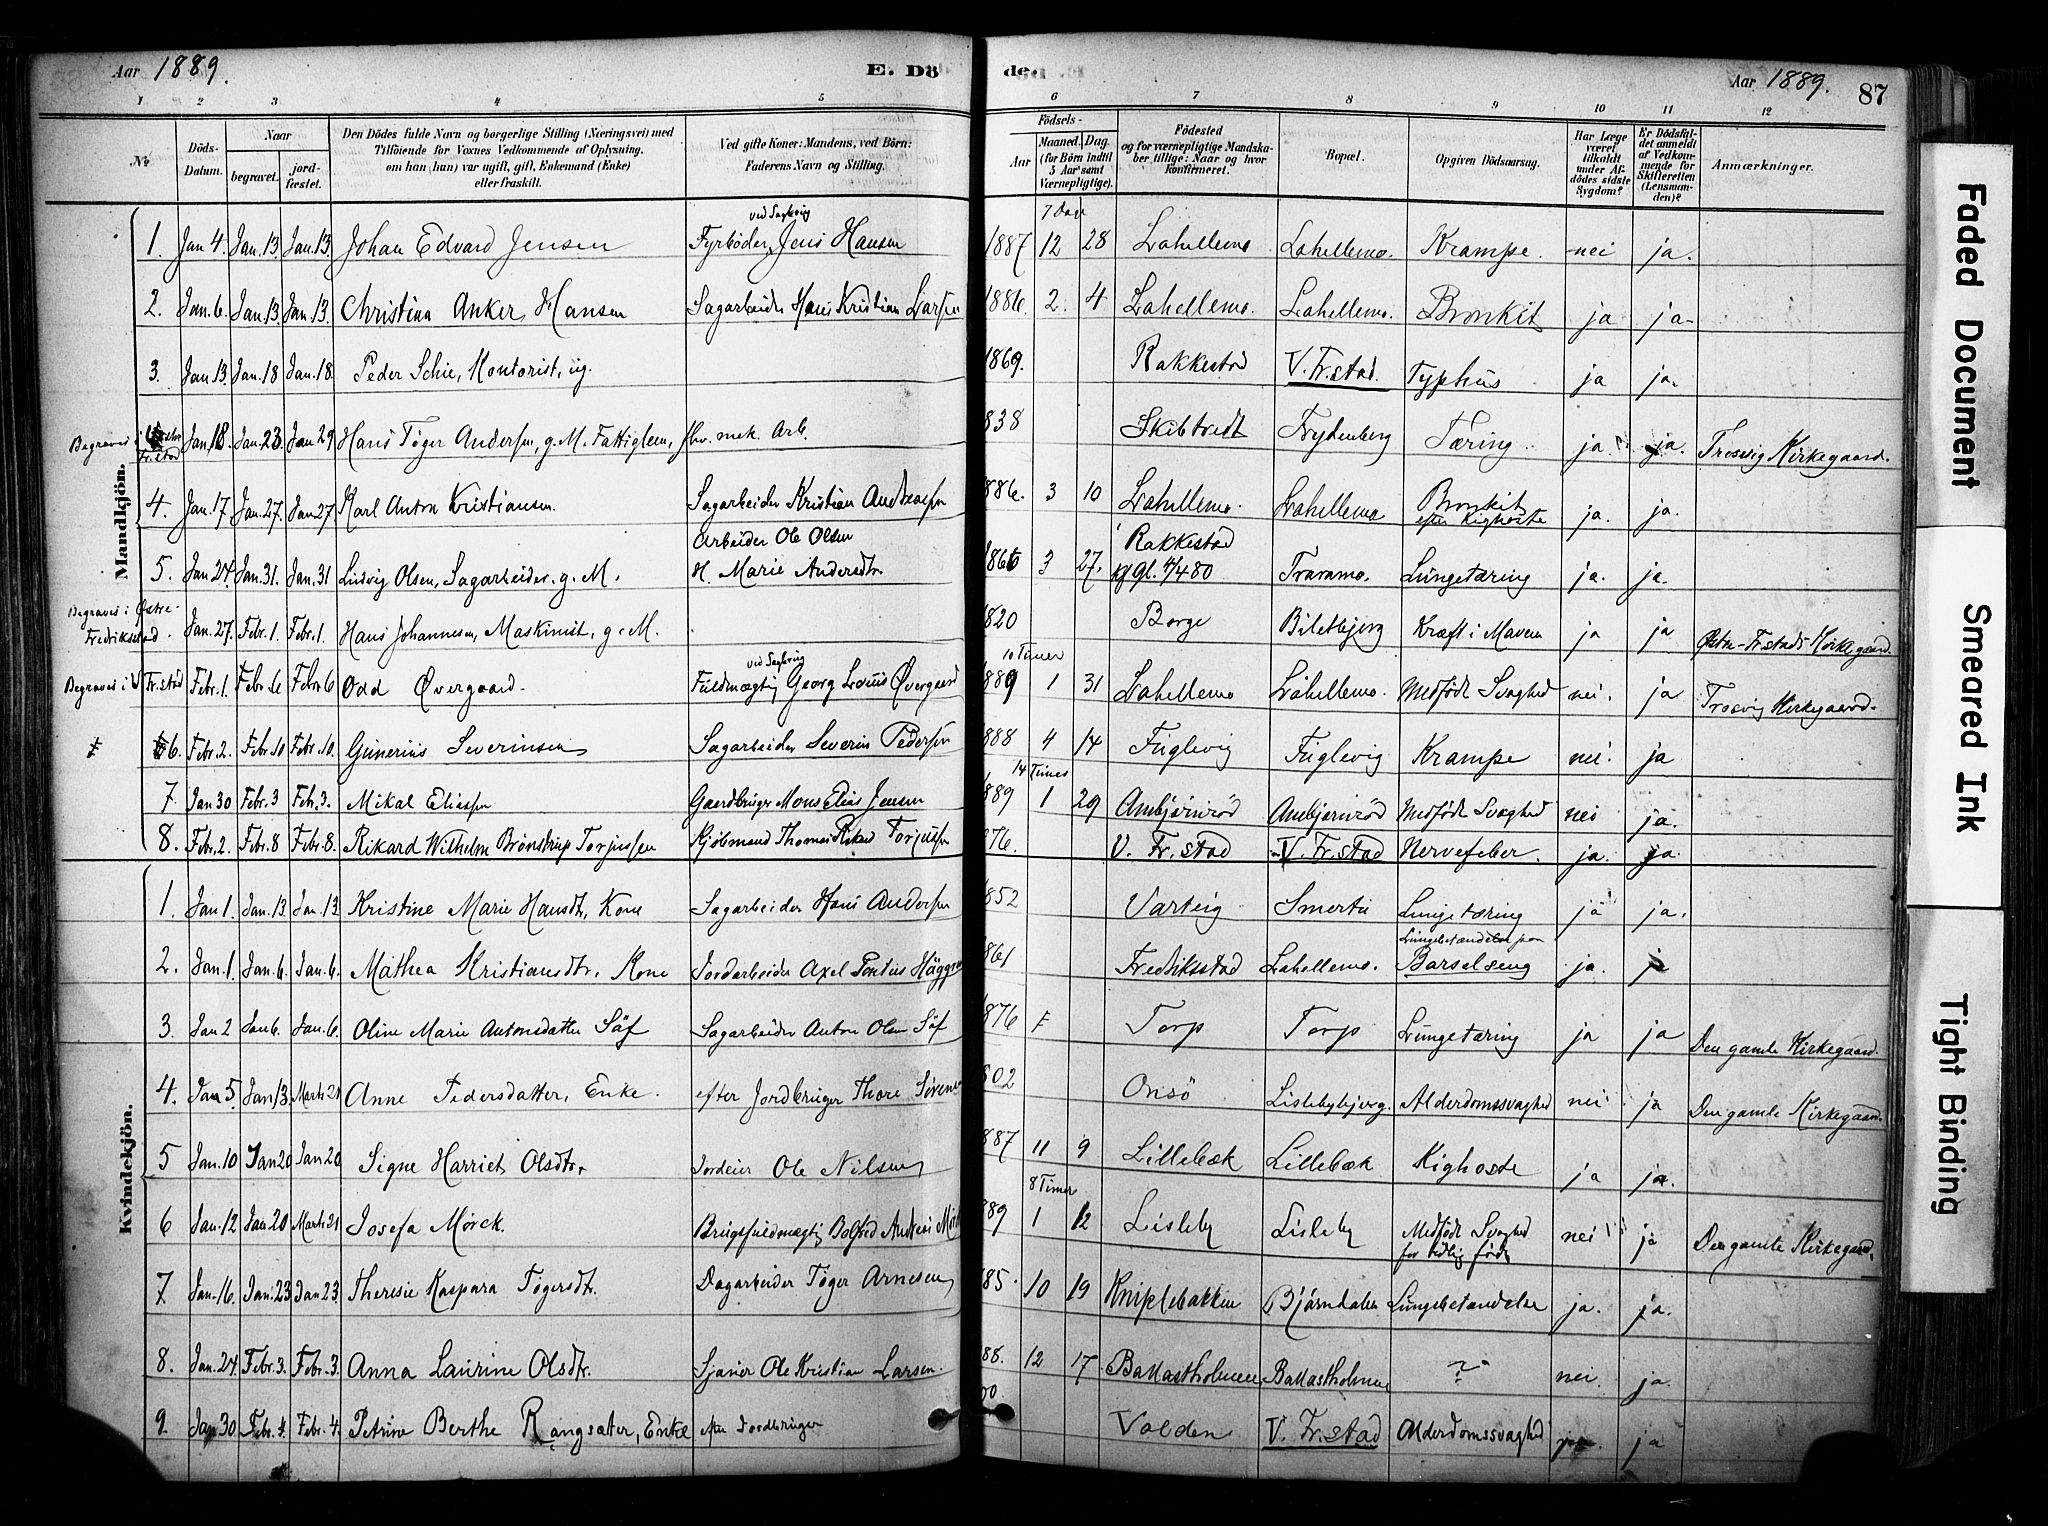 Aar 1889.
E. Dö de
Aar 1889.
87
1 2 3 4 5 6 7 8 9 10 11 12
No
Döds-Datum.
Naar
begravet.
jord-fæstet.
Den Dödes fulde Navn og borgerlige Stilling (Næringsvei) med
Tilföiende for Voxnes Vedkommende af Oplysning,
om han (hun) var ugift, gift, Enkemand (Enke)
eller fraskilt.
Ved gifte Koner: Mandens, ved Börn:
Faderens Navn og Stilling.
Födsels-
Aar
Maaned. Dag.
(for Börn indtil
5 Aar samt
Værnepligtige).
Födested
og for værnepligtige Mandska-
ber tillige: Naar og hvor
konfirmeret.
Bopæl.
Opgiven Dödsaarsag.
Har Læge
været
tilkaldt
under Af-
dödes sidste
Sygdom?
Er Dödsfal-
det anmeldt
af Vedkom-
mende for
Skifteretten
(Lensman-
den)?
Anmærkninger.
Mandkjön.
ved Sagbrug
7 Dage
1. Jan 4. Jan. 13 Jan. 13. Johan Edvard Jensen Fyrböder Jens Hansen 1887 12 28 Lahellemo Lahellemo. Krampe. nei ja.
2. Jan. 6. Jan. 13. Jan. 13. Christian Anker Hansen Sagarbeider Hans Kristian Larsen 1886. 2. 4 Lahellemo. Lahellemo. Bronkit ja ja
3. Jan 13. Jan. 18 Jan. 18. Peder Schie, Kontorist, ug. 1869. Rakkestad V. Fr.stad. Typhus ja ja.
Begraves i Fr.stad Jan. 18 Jan. 23. Jan 29 Hans Tøger Andersen, g. M. Fattiglem, fhv. mek. Arb. 838 Skibtvedt Frydenberg Tæring. ja. ja. Trosvig Kirkegaard.
4. Jan. 17 Jan. 27. Jan 27. Karl Anton Kristiansen. Sagarbeider Kristian Andreasen 886. 3 10 Lahellemo. Lahellemo Bronkit
efter Kighoste ja. ja.
Arbeider Ole Olsen
5. Jan 24. Jan. 31. Jan. 31 Ludvig Olsen, Sagarbeider, g. M. H. Marie Andersdtr. 3 27. Rakkestad
Traramo. Lungetæring ja. ja.
Begraves i Østre-Fredriksstad. Jan. 27. Febr. 1. Febr. 1. Hans Johannesen, Maskinist, g. M. 820 Borge Biletbjerg Kræft i Maven ja ja Østre-Fr.stads Kirkegaard.
ved Sagbrug
10 Timer
Begraves i V Fr.stad Febr. 1. Febr. 6 Febr. 6 Odd Øvergaard. Fuldmægtig Georg Louis Øvergaard 889 1 31 Lahellemo Lahellemo. Medfödt Svaghed nei. ja Trosvig Kirkegaard.
6. Febr. 2. Febr. 10 Febr. 10. Gunerius Severinsen Sagarbeider Severin Pedersen 888 4 14 Fuglevig Fuglevig Krampe nei. ja
14 Timer
7. Jan 30 Febr. 3 Feb. 3. Mikal Eliasen Gaardbruger Mons Elias Jensen 889 1 29 Ambjørnrød Ambjørnrød Medfödt Svaghed nei ja.
8. Febr. 2. Febr. 8 Febr. 8. Rikard Wilhelm Brønstrup Torjussen Kjöbmand Thomas Rikard Torjussen 876. V. Fr.stad V. Fr.stad Nervefeber. ja. ja.
Kvindekjön.
1. Jan 1. Jan. 13. Jan. 13. Kristine Marie Hansdtr, Kone Sagarbeider Hans Andersen 852 Varteig Smertu Lungetæring ja ja.
2. Jan. 1. Jan. 6. Jan. 6. Mathea Kristiansdtr. Kone Jordarbeider Axel Pontus Häggren 861 Fredriksstad Lahellemo. Lungebetændelse paa
Barselseng ja. ja
3. Jan 2 Jan 6. Jan. 6. Oline Marie Antonsdatter Söf Sagarbeider Anton Olsen Söf 1876 Torp Torp Lungetæring ja ja Den gamle Kirkegaard.
4. Jan 5. Jan 13. Marts 21 Anne Pedersdatter, Enke. efter Jordbruger Thore Sörensen 802 Onsö Lislebybjerg. Alderdomssvaghed nei ja Den gamle Kirkegaard.
5 Jan. 10 Jan 20 Jan 20 Signe Harriet Olsdtr Jordeier Ole Nilsen 887 11 9 Lillebæk Lillebæk Kighoste ja ja.
8 Timer
6 Jan. 12 Jan 20 Marts 21 Josefa Mörck. Brugsfuldmægtig 889 1 12 Lisleby Lisleby Medfödt Svaghed
for tidlig födt nei ja Den gamle Kirkegaard.
7. Jan. 16. Jan. 23 Jan 23 Theresie Kaspara Tøgersdtr. Dagarbeider Tøger Arnesen 85. 10 19 Kniplebakken Bjørndalen Lungebetændelse ja. ja.
8. Jan. 24. Febr. 3. Febr. 3 Anna Laurine Olsdtr. Sjauer Ole Kristian Larsen. 88. 12 17 Ballastholmen Ballastholmen ? nei. ja.
9. Jan 30 Febr. 4. Febr. 4. Petrine Berthe Rangsæter, Enke efter Jordbruger Volden V. Fr.stad Alderdomssvaghed ja. ja
Faded Document
Smeared Ink
Tight Binding